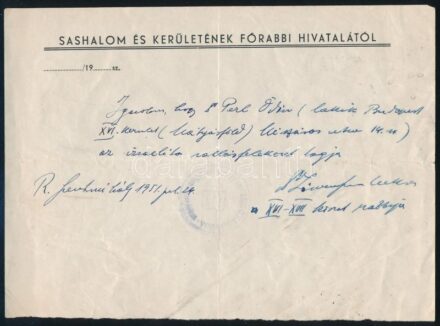 SASHALOM ÉS KERÜLETÉNEK FŐRABBI HIVATALÁTÓL
/19 sz.
Igazolom, hogy Dr Perl Ödön (lakik Budapest
XVI. kerület (Mátyásföld) Mészáros utca 14. sz)
az izraelita vallásfelekezet tagja
R. szentmihály 1951. júl.
a XVI-XVII kerület rabbija